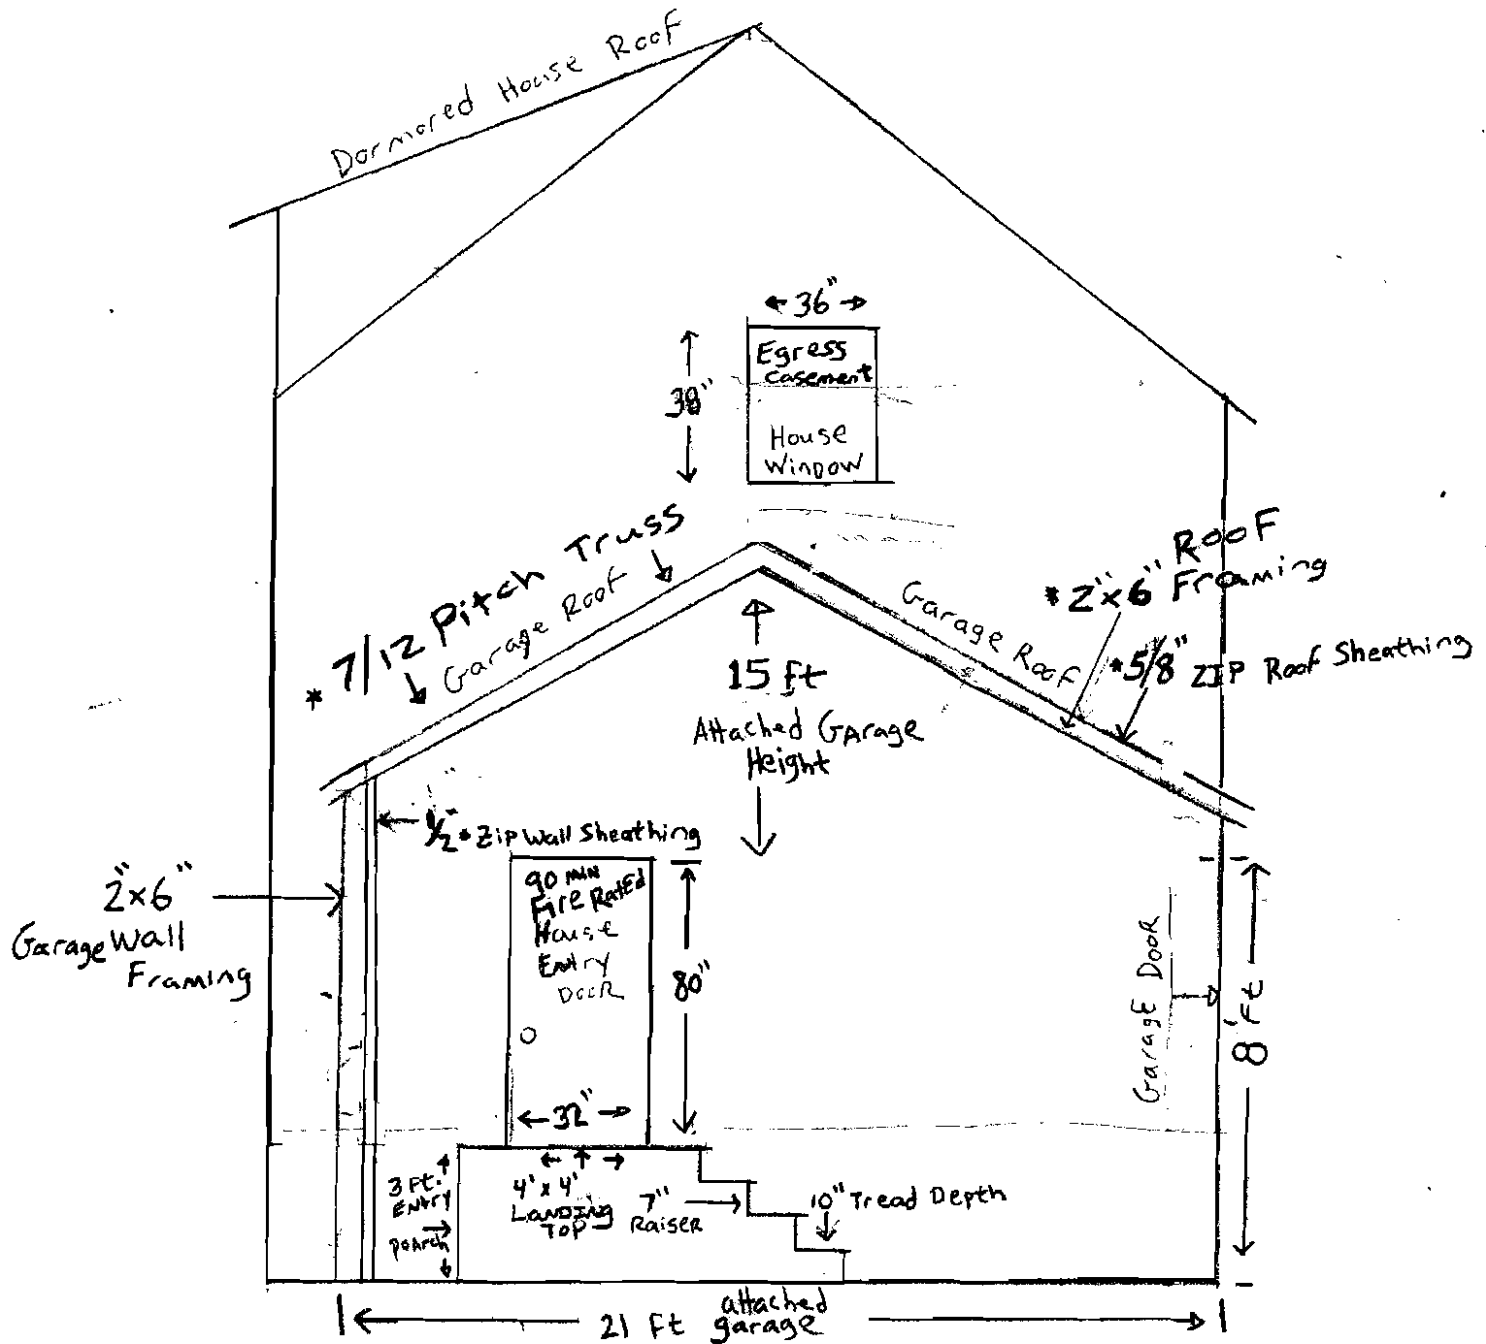 Dormored House Roof
36"
Egress
casement
38"
House
Window
* 7/12 Pitch Truss
Garage Roof
Garage Roof
*2"x6" Roof
Framing
*5/8" ZIP Roof Sheathing
15 ft
Attached Garage
Height
1/2" * Zip Wall Sheathing
2"x6"
Garage Wall
Framing
90 min
Fire Rated
House
Entry
Door
80"
32"
Garage Door
8'Ft
3 Ft.
Entry
Poarch
4' x 4'
Landing
Top
7"
Raiser
10" Tread Depth
21 Ft attached
garage